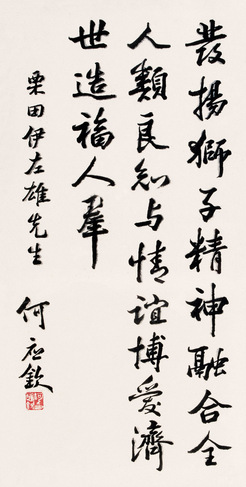 發揚獅子精神融合全
人類良知与情誼博愛濟
世造福人羣
栗田伊左雄先生
何应欽